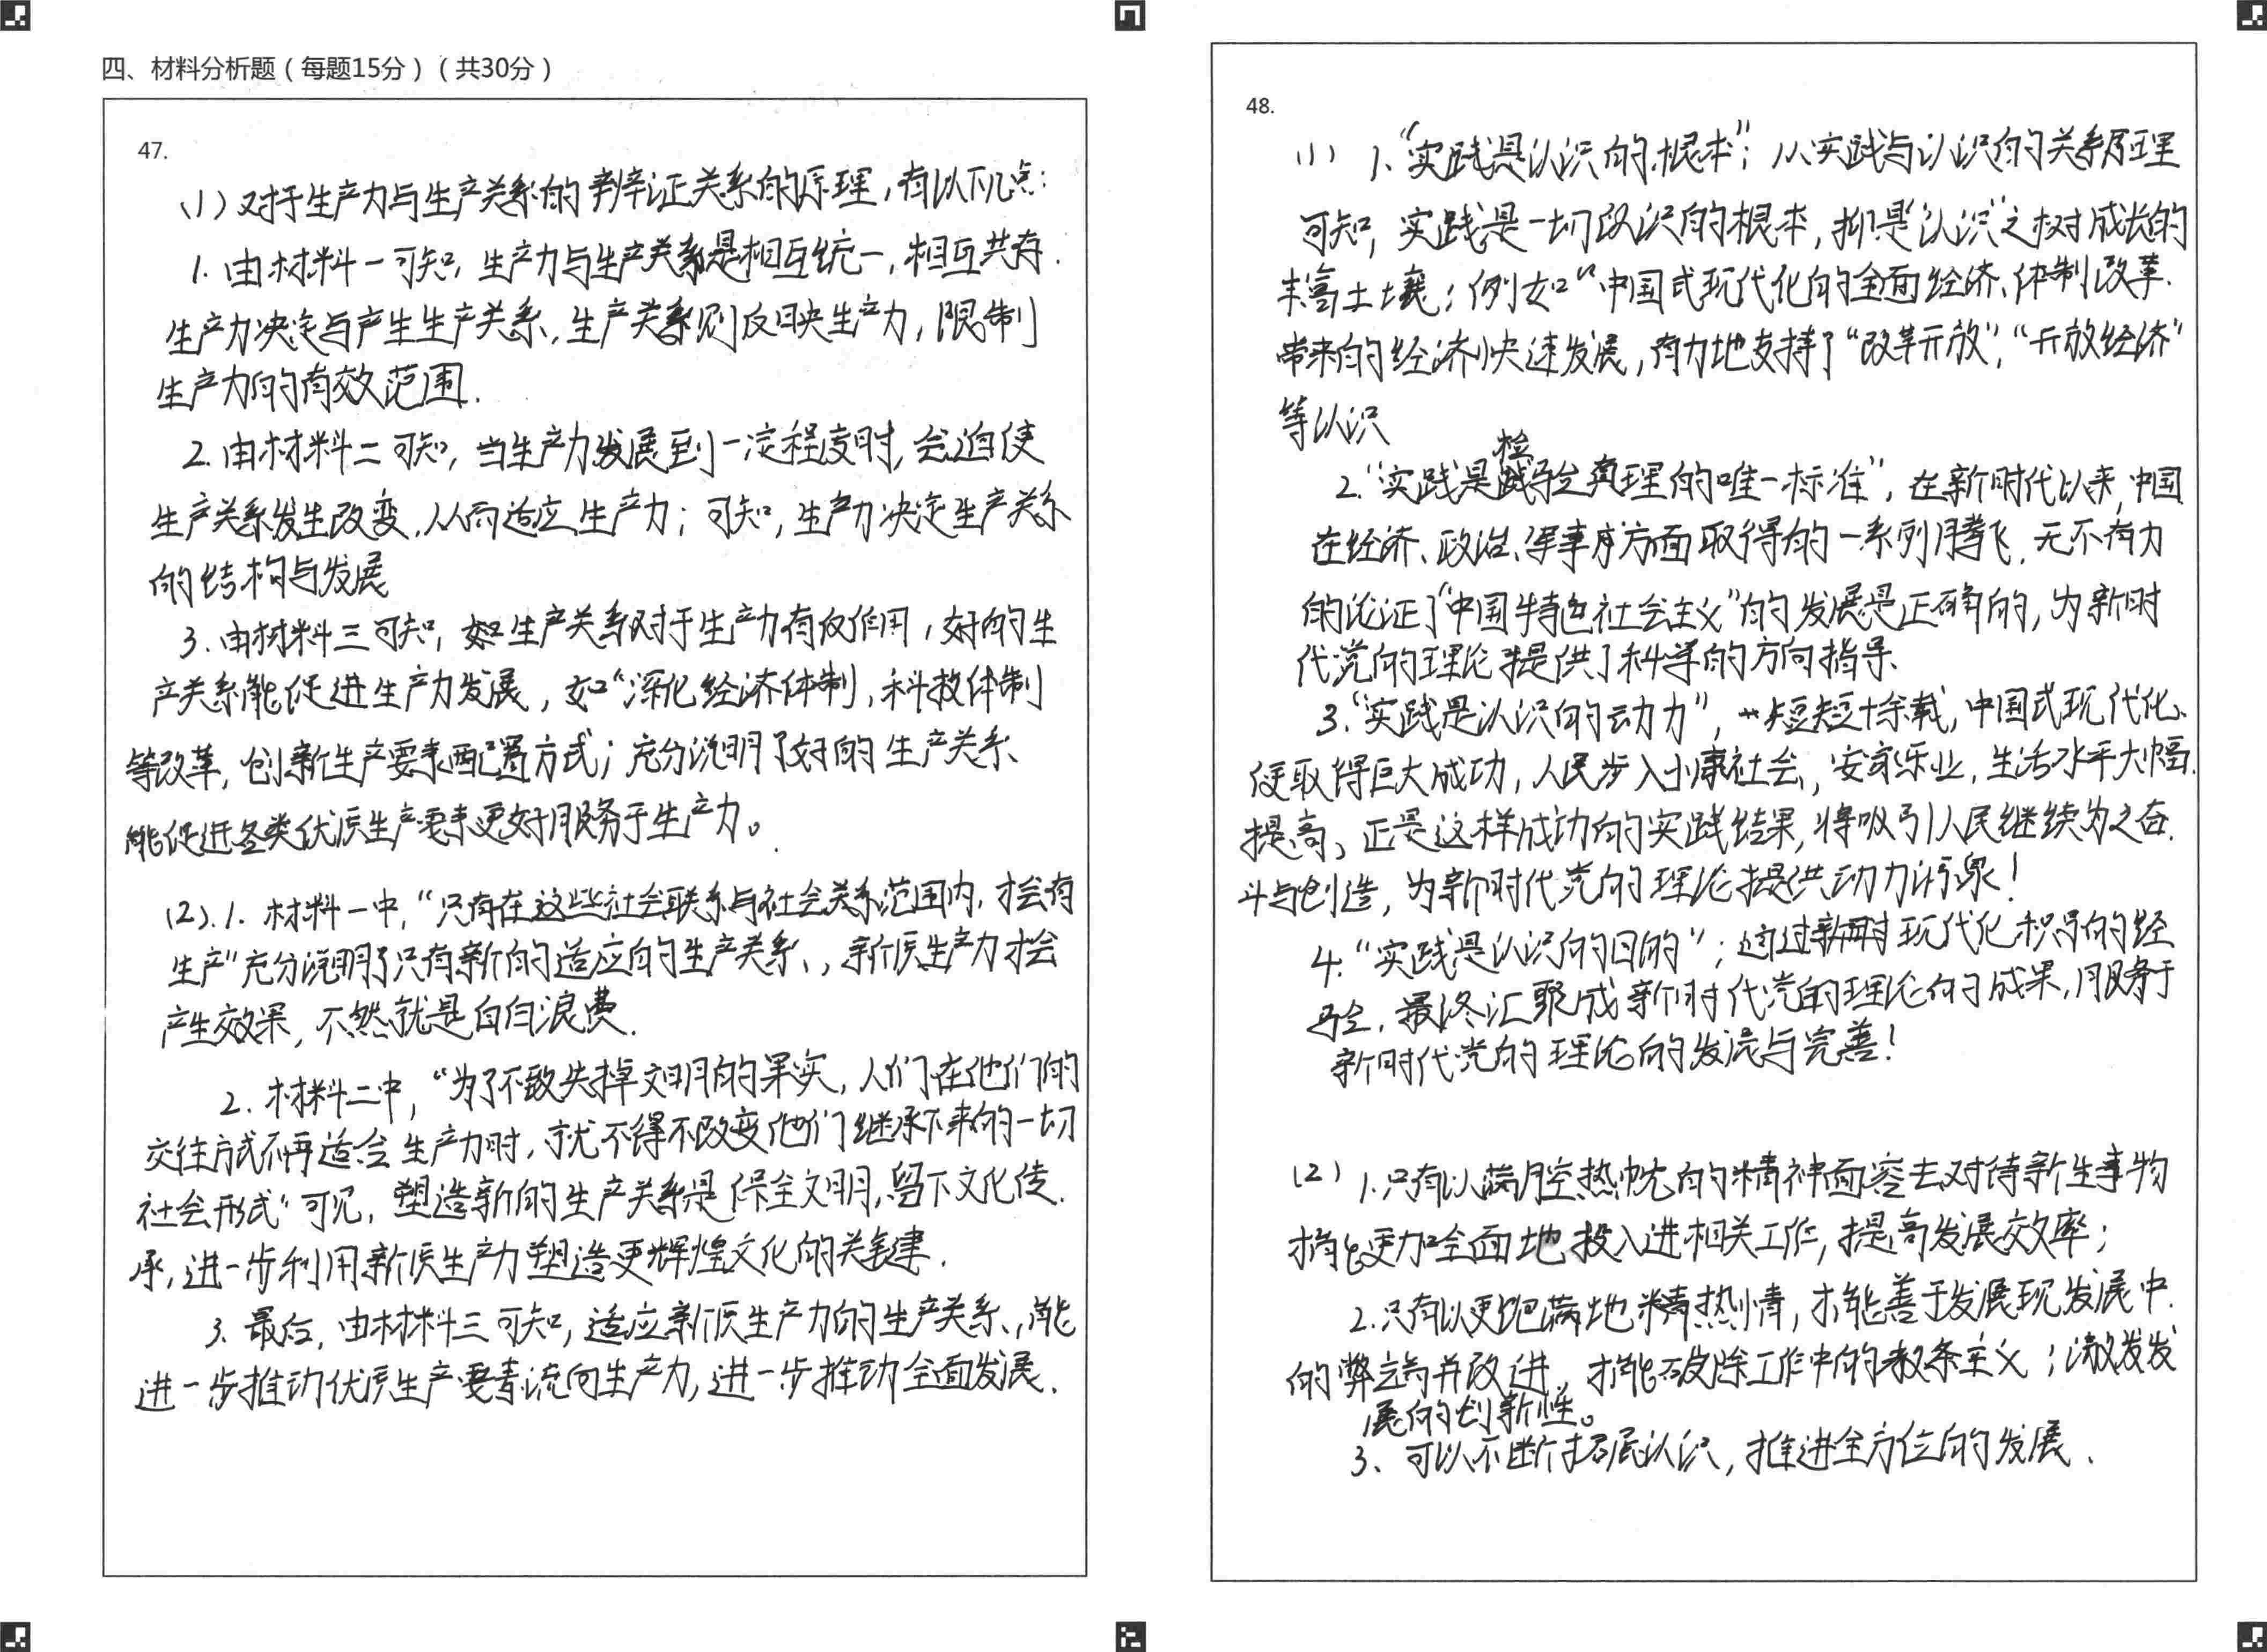 四、材料分析题（每题15分）（共30分）
47.
(1) 对于生产力与生产关系的辩证关系的原理，有以下几点：
1. 由材料一可知，生产力与生产关系是相互统一，相互共存.
生产力决定与产生生产关系，生产关系则反映生产力，限制
生产力的有效范围.
2. 由材料二可知，当生产力发展到一定程度时，会迫使
生产关系发生改变，从而适应生产力；可知，生产力决定生产关系
的结构与发展
3. 由材料三可知，生产关系对于生产力有反作用，好的生
产关系能促进生产力发展，如“深化经济体制，科技体制
等改革，创新生产要素配置方式；充分说明了好的生产关系
能促进各类优质生产要素更好服务于生产力。
(2).1. 材料一中，“只有在这些社会联系与社会关系范围内，才会有
生产”充分说明了只有新的适应的生产关系，新质生产力才会
产生效果，不然就是白白浪费.
2. 材料二中，“为了不致失掉文明的果实，人们在他们的
交往方式不再适合生产力时，就不得不改变他们继承下来的一切
社会形式”可见，塑造新的生产关系是保全文明，留下文化传
承，进一步利用新质生产力塑造更辉煌文化的关键.
3. 最后，由材料三可知，适应新质生产力的生产关系，能
进一步推动优质生产要素流向生产力，进一步推动全面发展.
48.
(1) 1. “实践是认识的根本”；从实践与认识的关系原理
可知，实践是一切认识的根本，抑是“认识”之树成长的
丰富土壤；例如“中国式现代化的全面经济、体制改革.
带来的经济快速发展，有力地支持了“改革开放”，“开放经济”
等认识
2. “实践是检验真理的唯一标准”，在新时代以来，中国
在经济、政治、军事等方面取得的一系列腾飞，无不有力
的论证了“中国特色社会主义”的发展是正确的，为新时
代党的理论提供了科学的方向指导.
3. “实践是认识的动力”，短短十余载，中国式现代化
便取得巨大成功，人民步入小康社会，安家乐业，生活水平大幅
提高，正是这样成功的实践结果，将吸引人民继续为之奋
斗与创造，为新时代党的理论提供动力源泉！
4. “实践是认识的目的”；通过新时现代化积累的经
验，最终汇聚成新时代党的理论的成果，服务于
新时代党的理论的发展与完善！
(2) 1. 只有以满腔热忱的精神面容去对待新生事物
才能更加全面地投入进相关工作，提高发展效率；
2. 只有以更饱满地精热情，才能善于发展现发展中
的弊端并改进，才能破除工作中的教条主义；激发发
展的创新性。
3、可以不断拓展认识，推进全方位的发展.